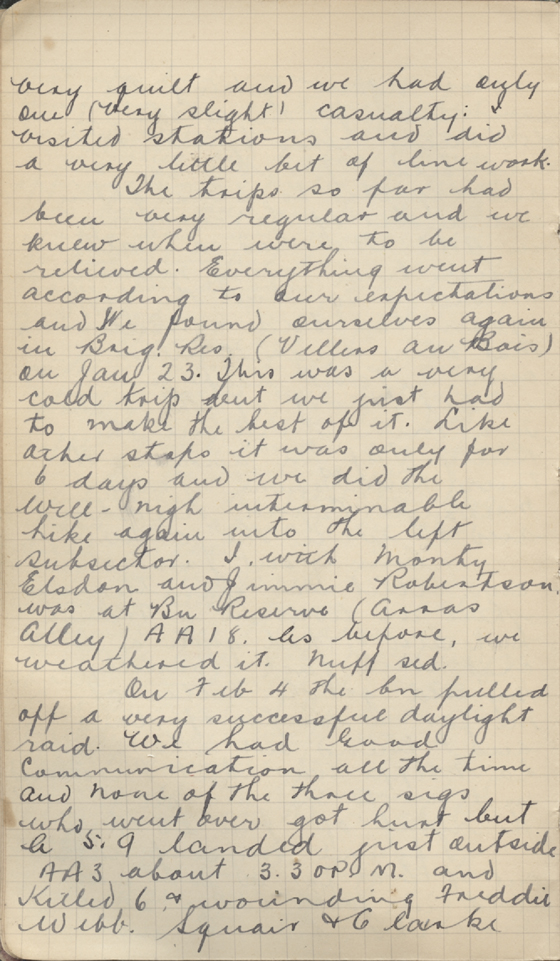 very quilt and we had only
one (very slight) casualty: I
visited stations and did
a very little bit of line work.
The trips so far had
been very regular and we
knew when were to be
relieved. Everything went
according to our expectations
and We found ourselves again
in Brig. Res. (Villers au Bois)
on Jan 23. This was a very
cold trip but we just had
to make the best of it. Like
other stops it was only for
6 days and we did the
well-nigh interminable
hike again into the left
subsector. I, with Monty
Elsdon and Jimmie Robertson,
was at Bn Reserve (Arras
Alley) AA18. As before, we
weathered it. Nuff sed.
On Feb 4 the bn pulled
off a very successful daylight
raid. We had Good
Communication all the time
and none of the three sigs
who went over got hurt but
a 5.9 landed just outside
AA3 about 3.30 P.M. and
Killed 6 & wounding Freddie
Webb. Squair & Clarke